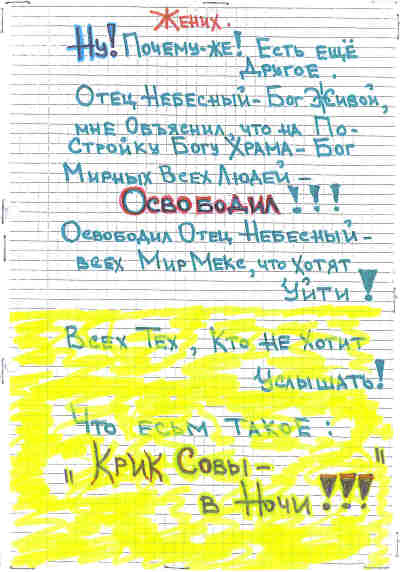 Жених.
Ну! Почему-же! Есть ещё
Другое.
Отец Небесный-Бог Живой,
мне Объяснил, что на По-
стройку Богу Храма-Бог
Мирных Всех Людей-
Освободил!!!
Освободил Отец Небесный-
всех МирМекс, что хотят
Уйти!
Всех Тех, Кто не хотит
Услышать!
Что есьм такое:
„Крик Совы-
в Ночи!!!"